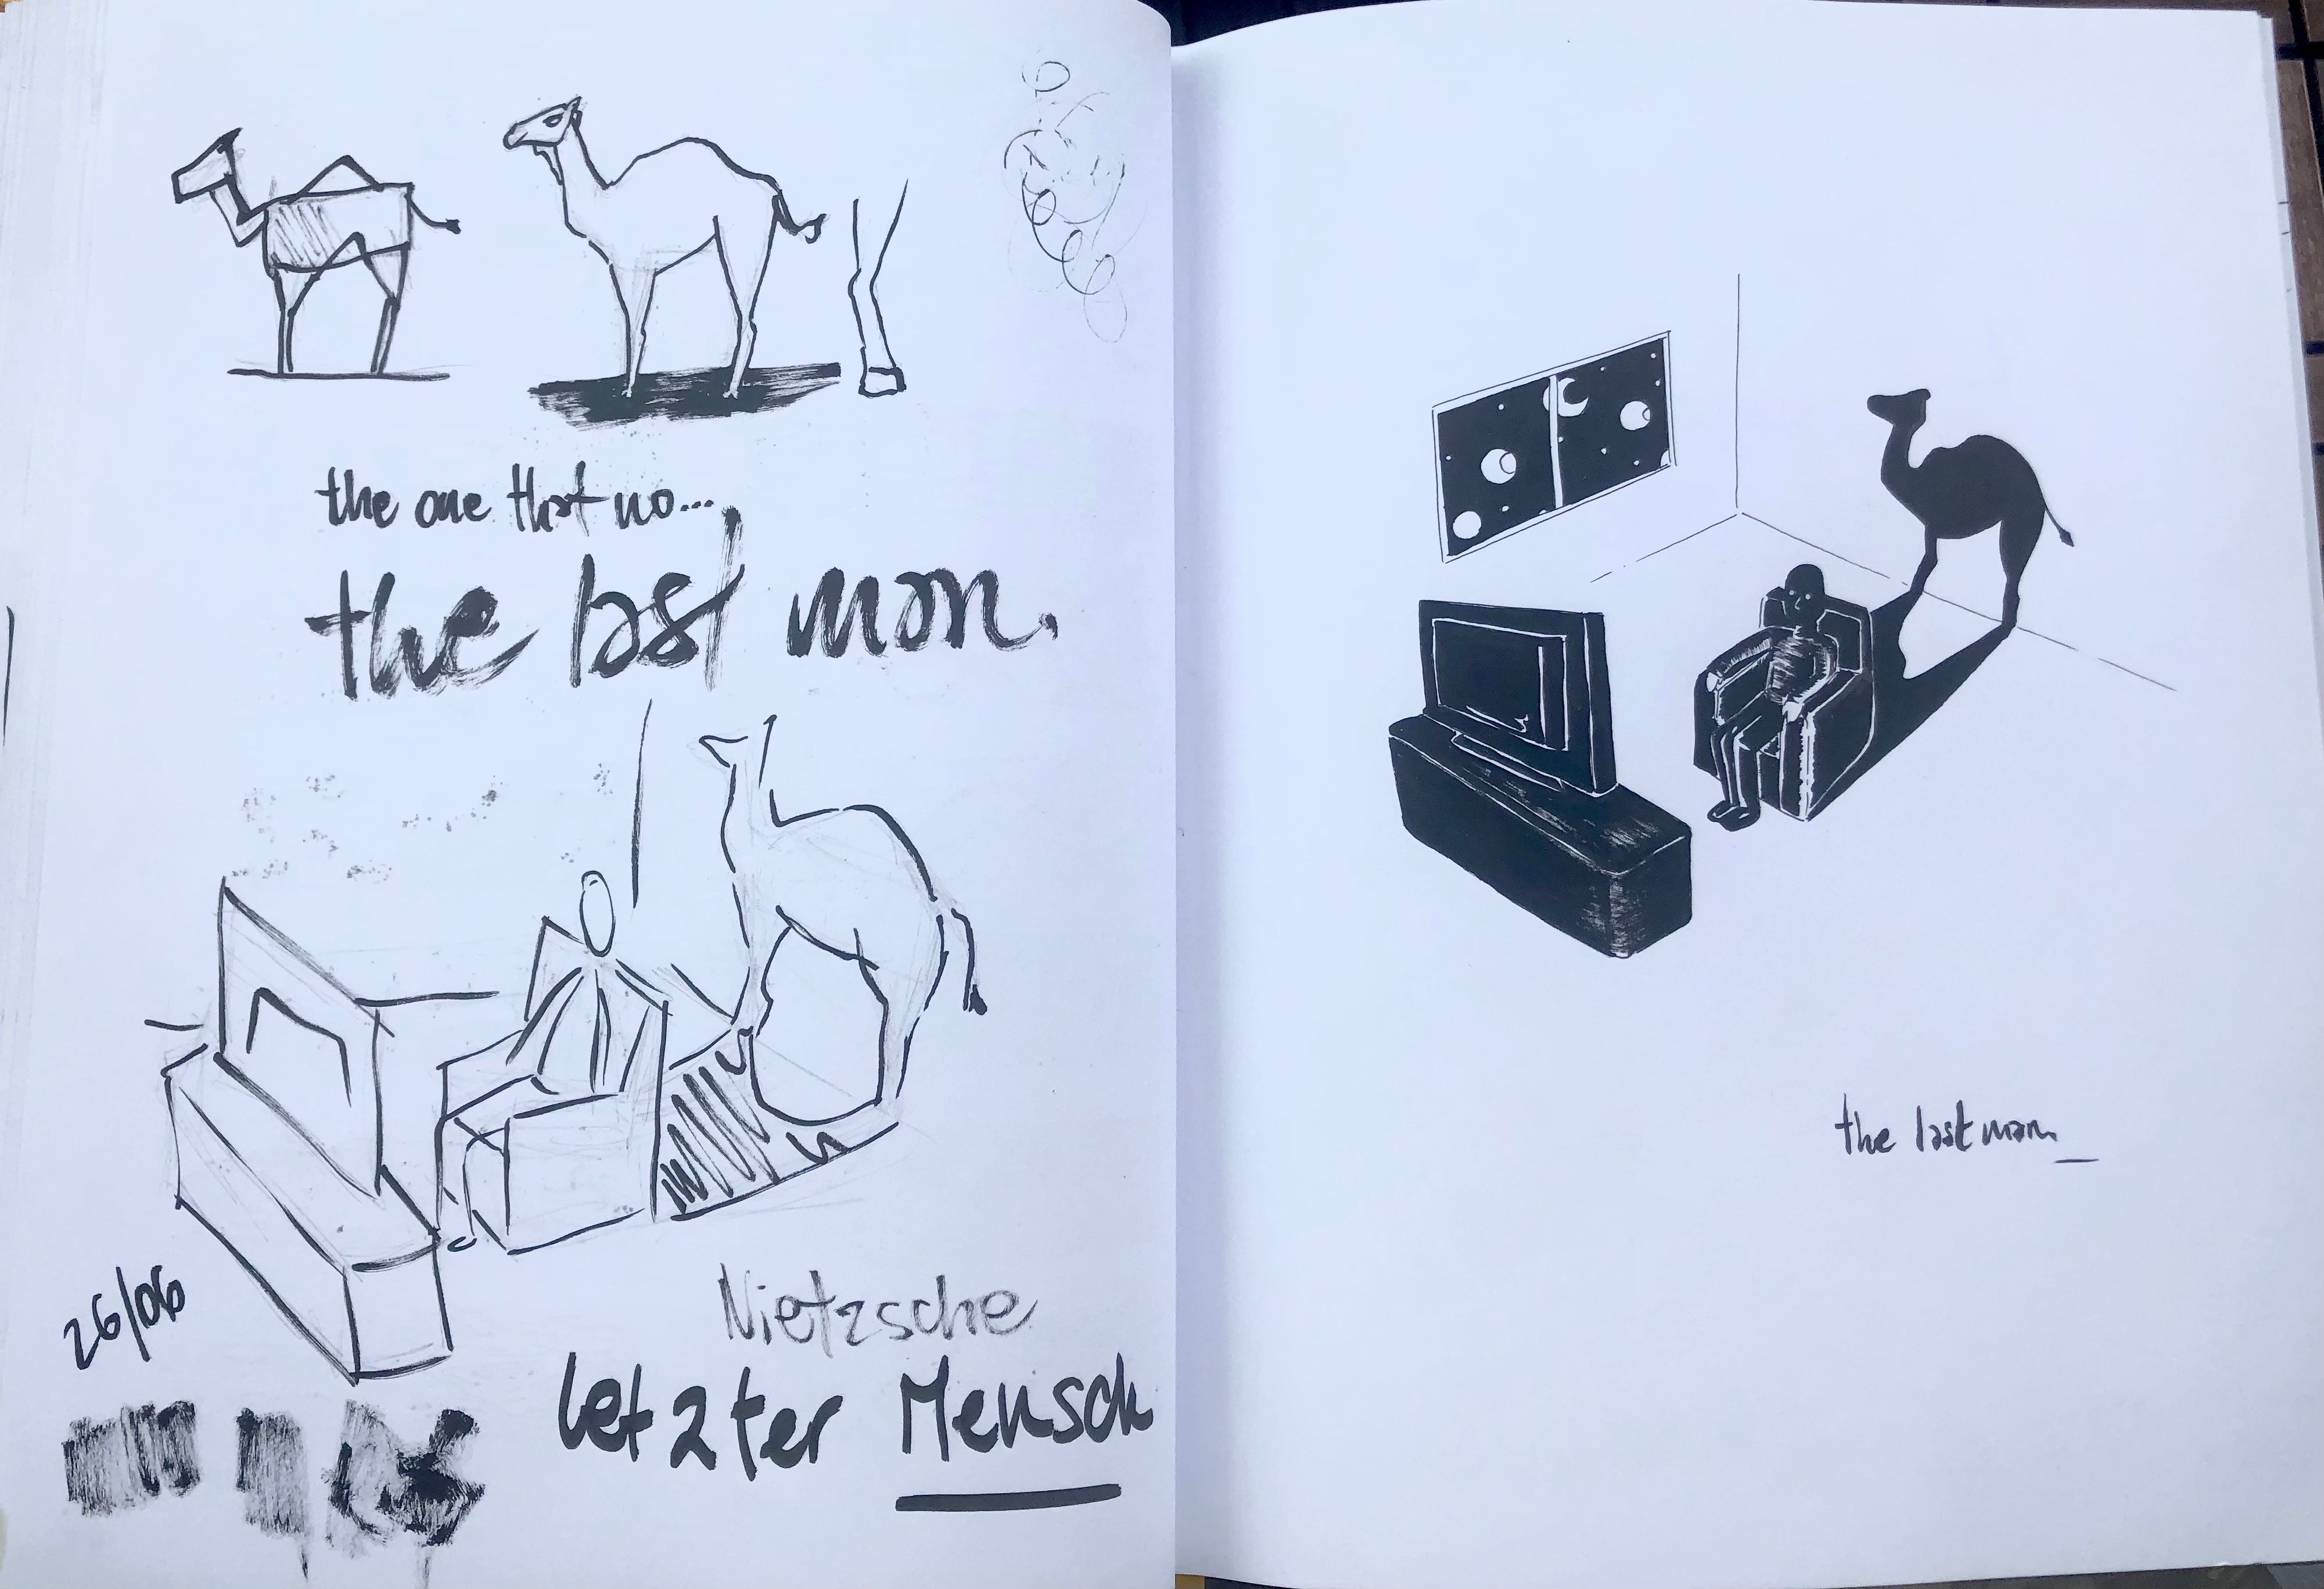 the one that no...
the last man.
26/06
Nietzsche
letzter Mensch
the last man_